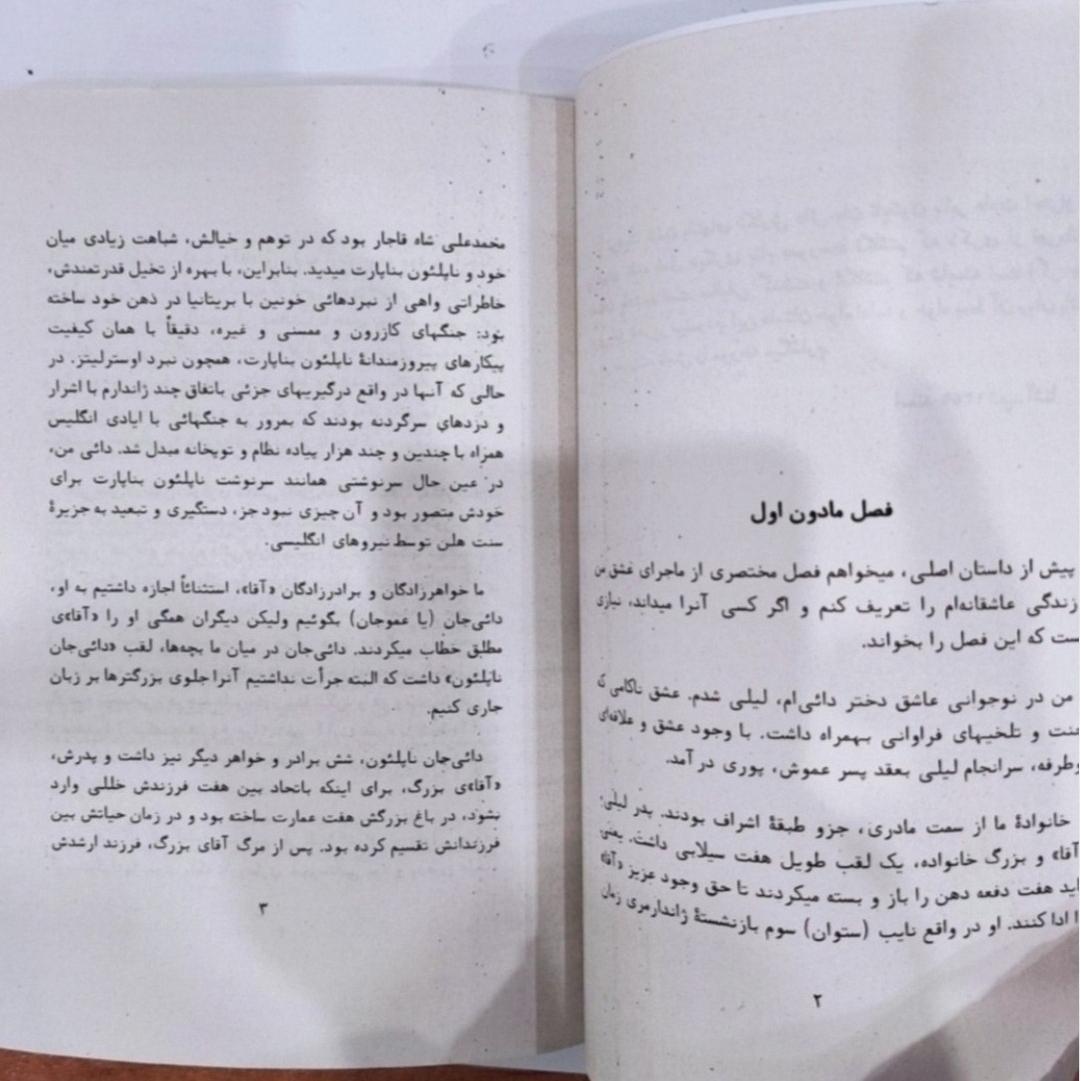 فصل مادون اول
پیش از داستان اصلی، میخواهم فصل مختصری از ماجرای عشق من
زندگی عاشقانه‌ام را تعریف کنم و اگر کسی آنرا میداند، نیازی
ست که این فصل را بخواند.
من در نوجوانی عاشق دختر دائی‌ام، لیلی شدم. عشق ناکامی که
و تلخیهای فراوانی بهمراه داشت. با وجود عشق و علاقه‌ای
وطرفه، سرانجام لیلی بعقد پسر عموش، پوری در آمد.
خانوادهٔ ما از سمت مادری، جزو طبقهٔ اشراف بودند. پدر لیلی،
آقا» و بزرگ خانواده، یک لقب طویل هفت سیلابی داشت. یعنی
اید هفت دفعه دهن را باز و بسته میکردند تا حق وجود عزیز «آقا»
ا ادا کنند. او در واقع نایب (ستوان) سوم بازنشستهٔ ژاندارمری زمان
۲
محمدعلی شاه قاجار بود که در توهم و خیالش، شباهت زیادی میان
خود و ناپلئون بناپارت میدید. بنابراین، با بهره از تخیل قدرتمندش،
خاطراتی واهی از نبردهائی خونین با بریتانیا در ذهن خود ساخته
بود: جنگهای کازرون و ممسنی و غیره، دقیقاً با همان کیفیت
پیکارهای پیروزمندانهٔ ناپلئون بناپارت، همچون نبرد اوسترلیتز. در
حالی که آنها در واقع درگیریهای جزئی باتفاق چند ژاندارم با اشرار
و دزدهای سرگردنه بودند که بمرور به جنگهائی با ایادی انگلیس
همراه با چندین و چند هزار پیاده نظام و توپخانه مبدل شد. دائی من،
در عین حال سرنوشتی همانند سرنوشت ناپلئون بناپارت برای
خودش متصور بود و آن چیزی نبود جز، دستگیری و تبعید به جزیرهٔ
سنت هلن توسط نیروهای انگلیسی.
ما خواهرزادگان و برادرزادگان «آقا»، استثنائاً اجازه داشتیم به او،
دائی‌جان (یا عموجان) بگوئیم ولیکن دیگران همگی او را «آقا»ی
مطلق خطاب میکردند. دائی‌جان در میان ما بچه‌ها، لقب «دائی‌جان
ناپلئون» داشت که البته جرأت نداشتیم آنرا جلوی بزرگترها بر زبان
جاری کنیم.
دائی‌جان ناپلئون، شش برادر و خواهر دیگر نیز داشت و پدرش،
«آقا»ی بزرگ، برای اینکه باتحاد بین هفت فرزندش خللی وارد
نشود، در باغ بزرگش هفت عمارت ساخته بود و در زمان حیاتش بین
فرزندانش تقسیم کرده بود. پس از مرگ آقای بزرگ، فرزند ارشدش
۳